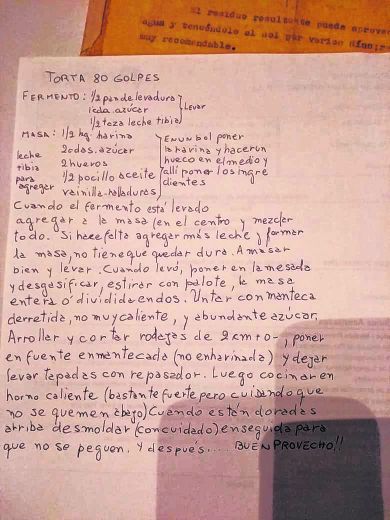 El residuo resultante puede aprovec
agua y teniéndolo al sol por varios días;
muy recomendable.
TORTA 80 GOLPES
FERMENTO: 1/2 pan de levadura
1 cda. azúcar
1/2 taza leche tibia
Levar
MASA: 1/2 kg. harina
2 cdas. azúcar
2 huevos
1/2 pocillo aceite
vainilla-ralladuras
leche
tibia
para
agregar
En un bol poner
la harina y hacer un
hueco en el medio y
allí poner los ingre
dientes
Cuando el fermento está levado
agregar a la masa (en el centro y mezclar
todo. Si hace falta agregar más leche y formar
la masa, no tiene que quedar dura. Amasar
bien y levar. Cuando levó, poner en la mesada
y desgasificar, estirar con palote, la masa
entera o dividida en dos. Untar con manteca
derretida, no muy caliente, y abundante azúcar.
Arrollar y cortar rodajas de 2 cm ro-, poner
en fuente enmantecada (no enharinada) y dejar
levar tapadas con repasador. Luego cocinar en
horno caliente (bastante fuerte pero cuidando que
no se quemen abajo) Cuando están doradas
arriba desmoldar (con cuidado) enseguida para
que no se peguen. Y después.... BUEN PROVECHO!!